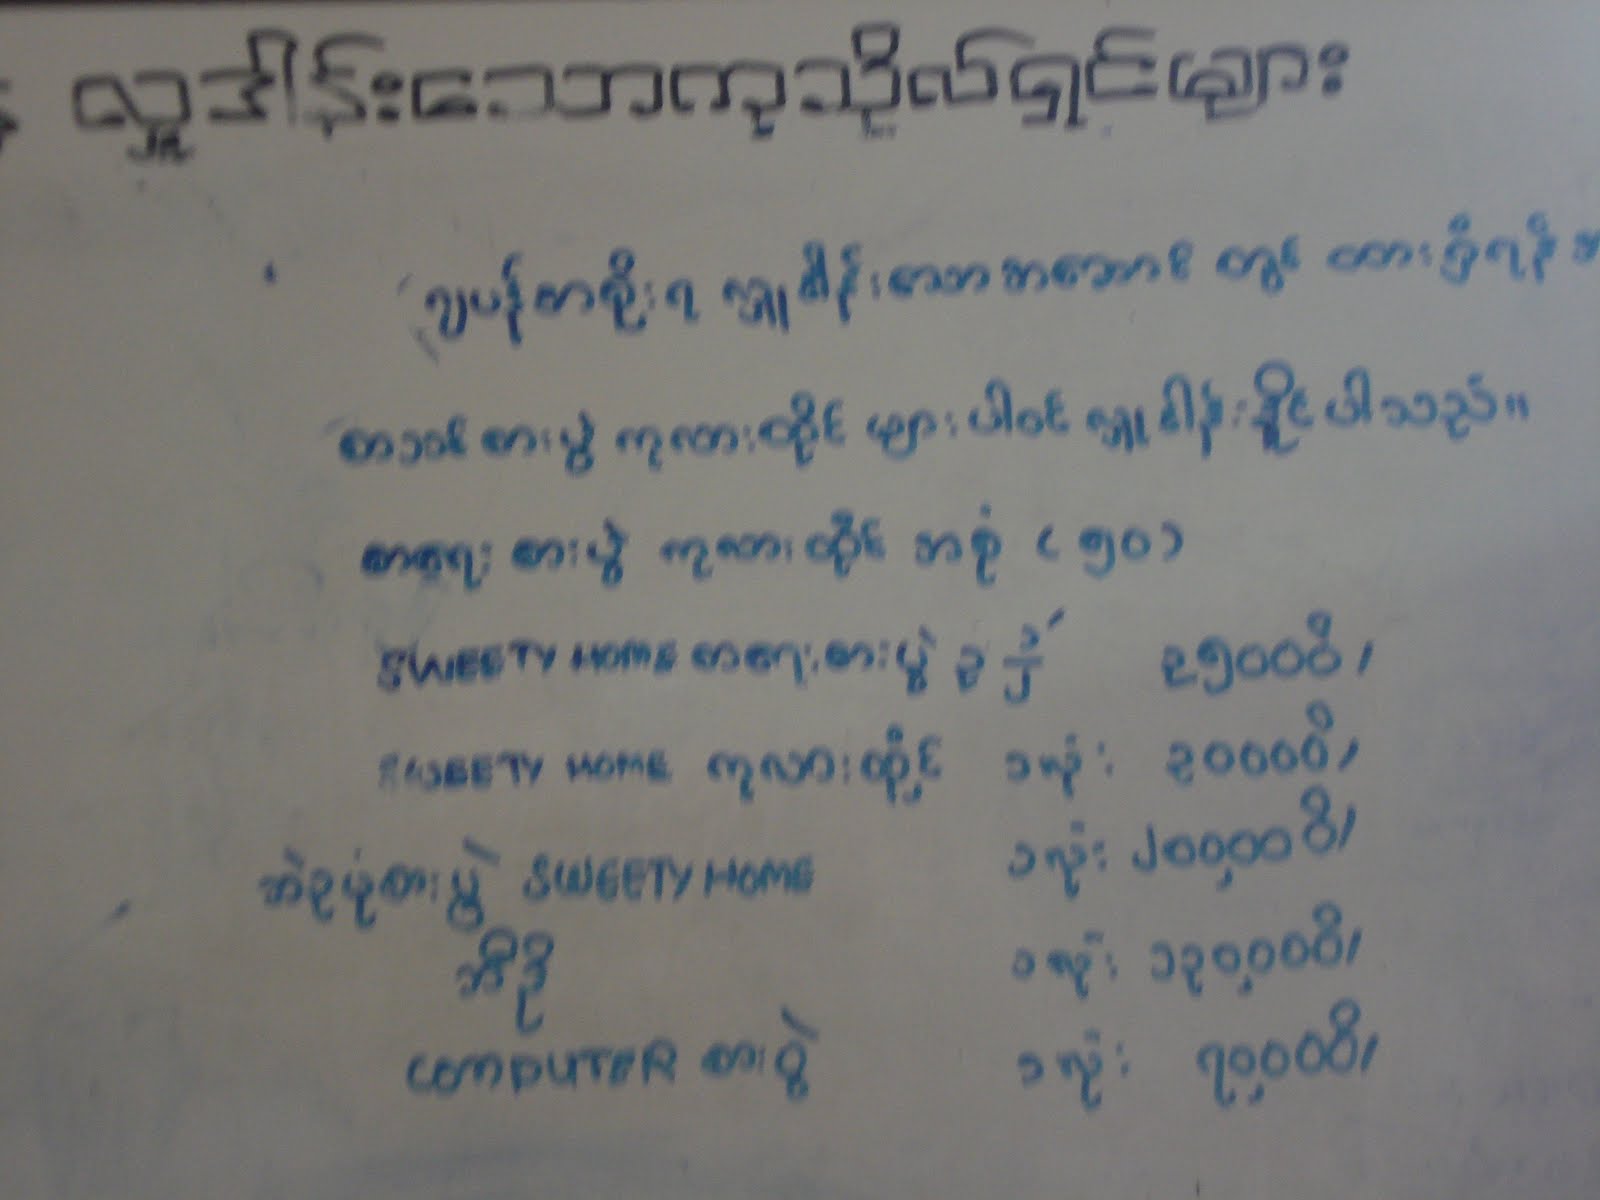 လှူဒါန်းသောကုသိုလ်ရှင်များ
ဂျပန်အစိုးရ လှူဒါန်းသော အဆောင် တွင် ထားရှိရန်
စာသင်စားပွဲ ကုလားထိုင် များ ပါဝင် လှူဒါန်းနိုင်ပါသည်။
စာရေး စားပွဲ ကုလားထိုင် အစုံ (၅၀)
SWEETY HOME စာရေးစားပွဲ ၃ ၃၅၀၀၀ိ/
SWEETY HOME ကုလားထိုင် ၁ လုံး ၃၀၀၀၀ိ/
ဘဲဥပုံစားပွဲ SWEETY HOME ၁ လုံး ၂၀၀,၀၀ိ/
ဘီဒို ၁ လုံး ၁၃၀,၀၀ိ/
COMPUTER စားပွဲ ၁ လုံး ၇၀,၀၀ိ/